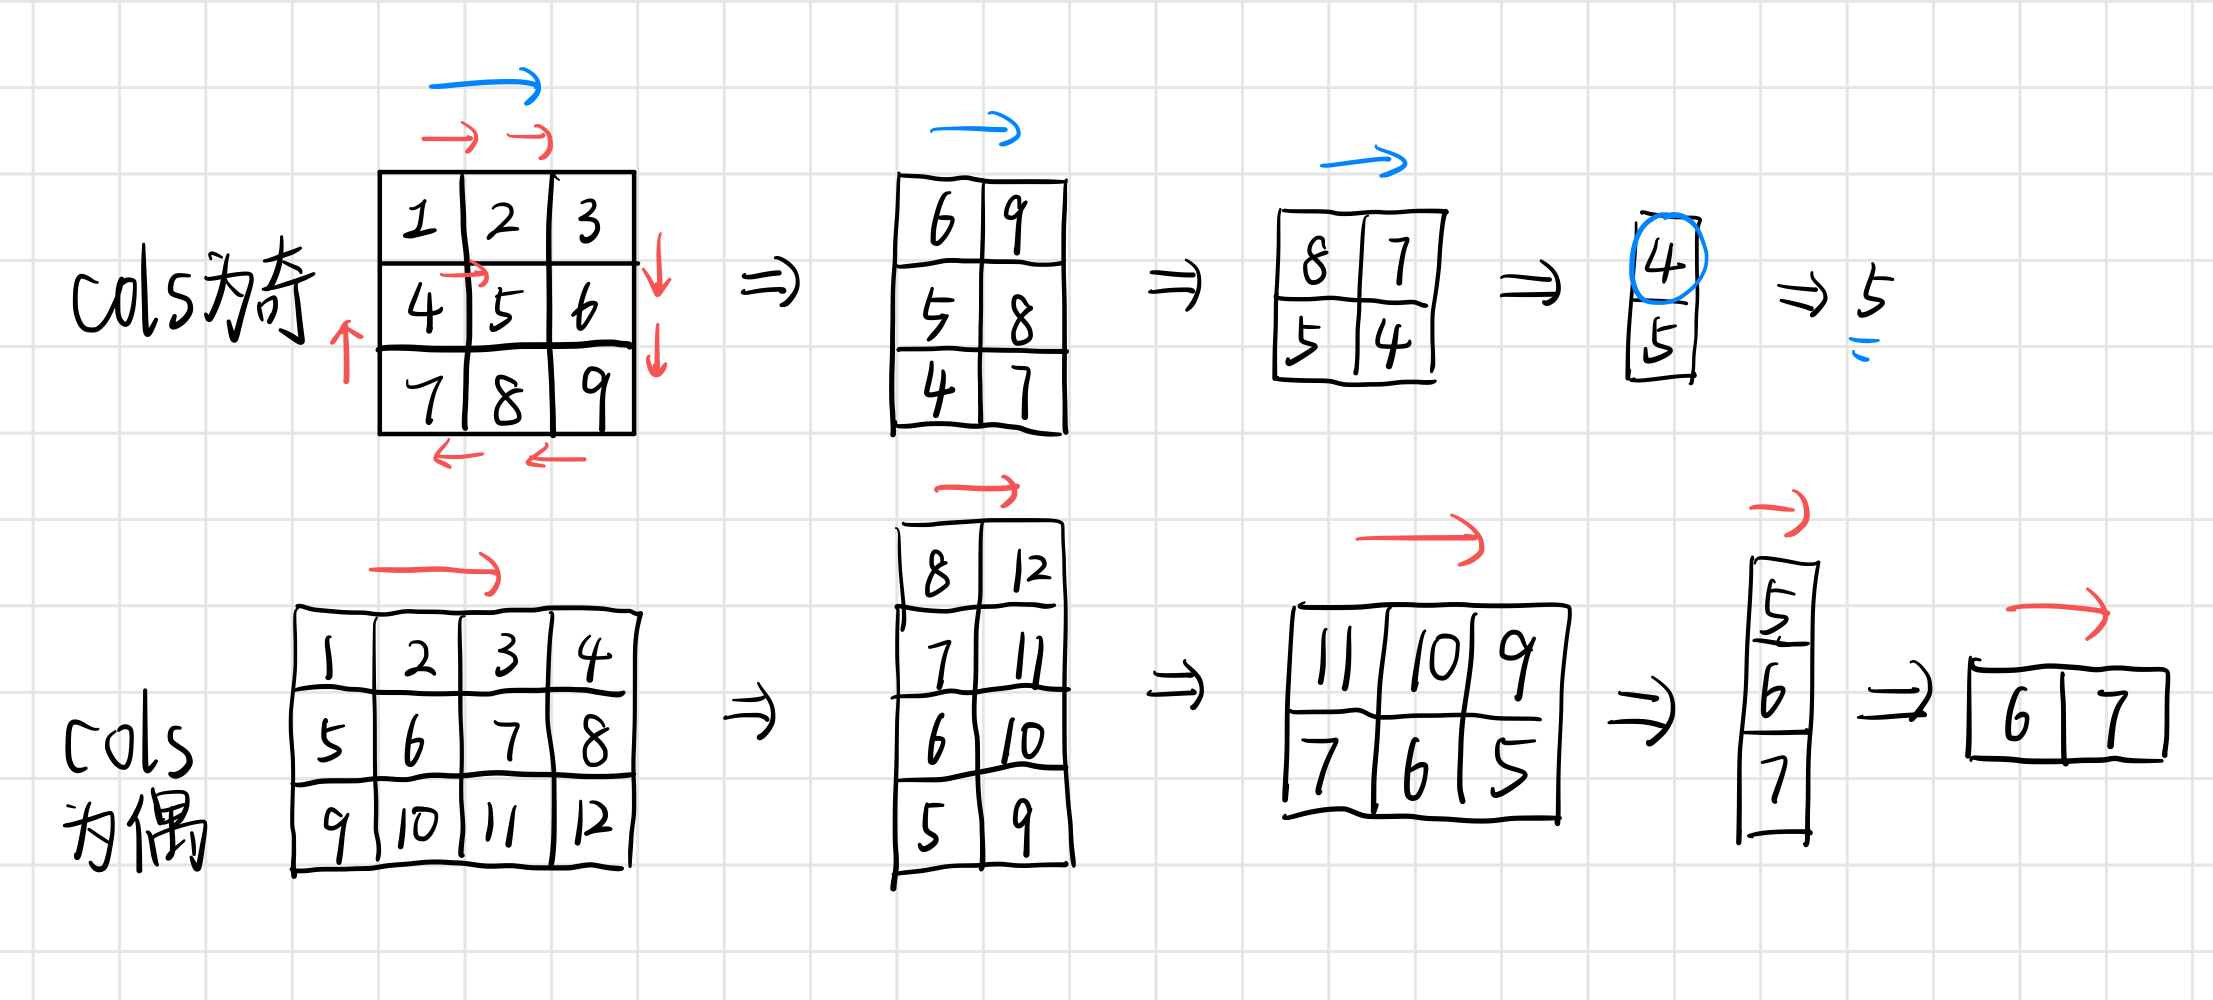 cols为奇
1 2 3
4 5 6
7 8 9
⇒
6 9
5 8
4 7
⇒
8 7
5 4
⇒
4
5
⇒ 5
cols
为偶
1 2 3 4
5 6 7 8
9 10 11 12
⇒
8 12
7 11
6 10
5 9
⇒
11 10 9
7 6 5
⇒
5
6
7
⇒
6 7